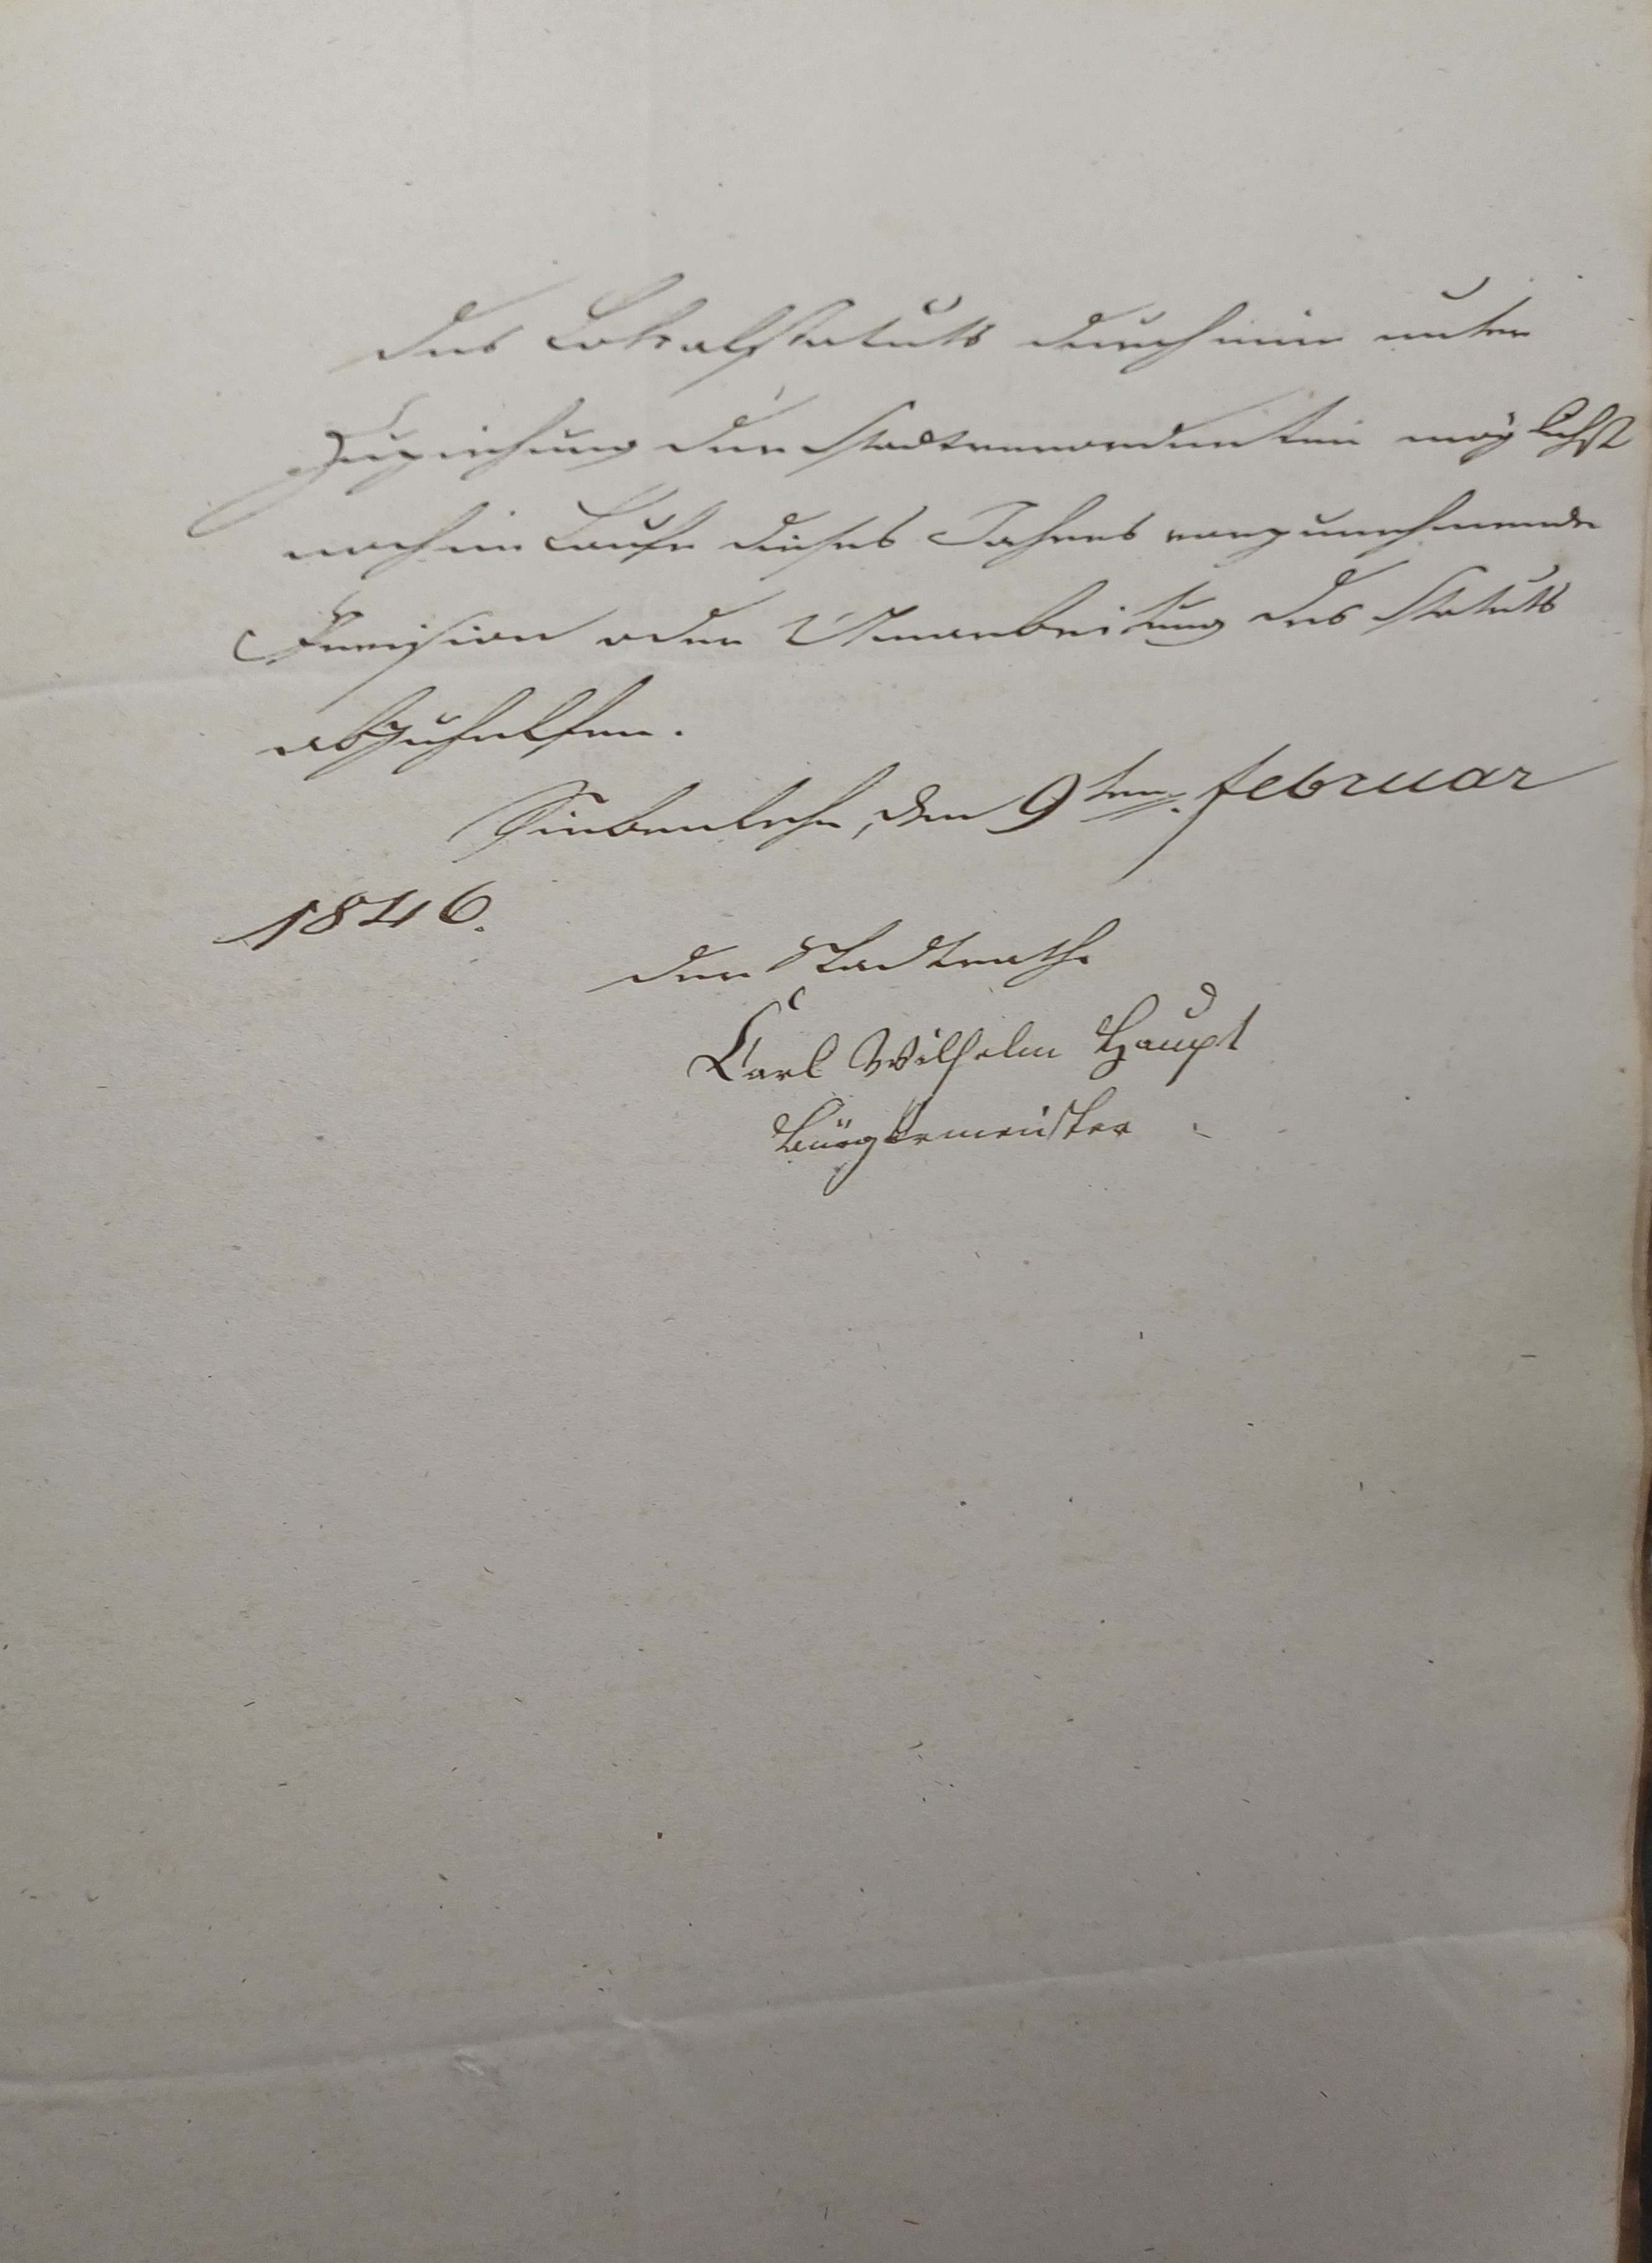 des Lokalstatuts durch eine unter
Zuziehung der Stadtverordneten möglichst
noch im Laufe dieses Jahres vorzunehmende
Revision oder Umarbeitung des Statuts
abzuhelfen.
Siebenlehn, den 9ten Februar
1846.
Der Stadtrath
Carl Wilhelm Haupt
Bürgermeister